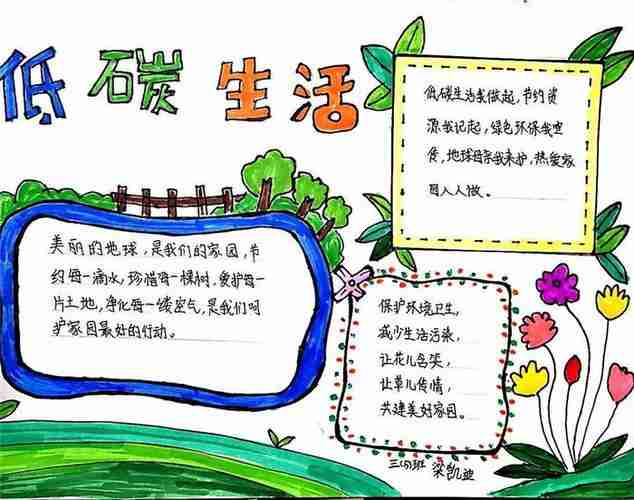 低碳生活
低碳生活我做起,节约资
源我记起,绿色环保我
食,地球母亲我来护,热爱家
园人人做。
美丽的地球,是我们的家园,节
约每一滴水,珍惜每一棵树,爱护每一
片土地,净化每一缕空气,是我们呵
护家园最好的行动。
保护环境卫生,
减少生活污染,
让花儿含笑,
让草儿传情,
共建美好家园。
班 梁凯迪